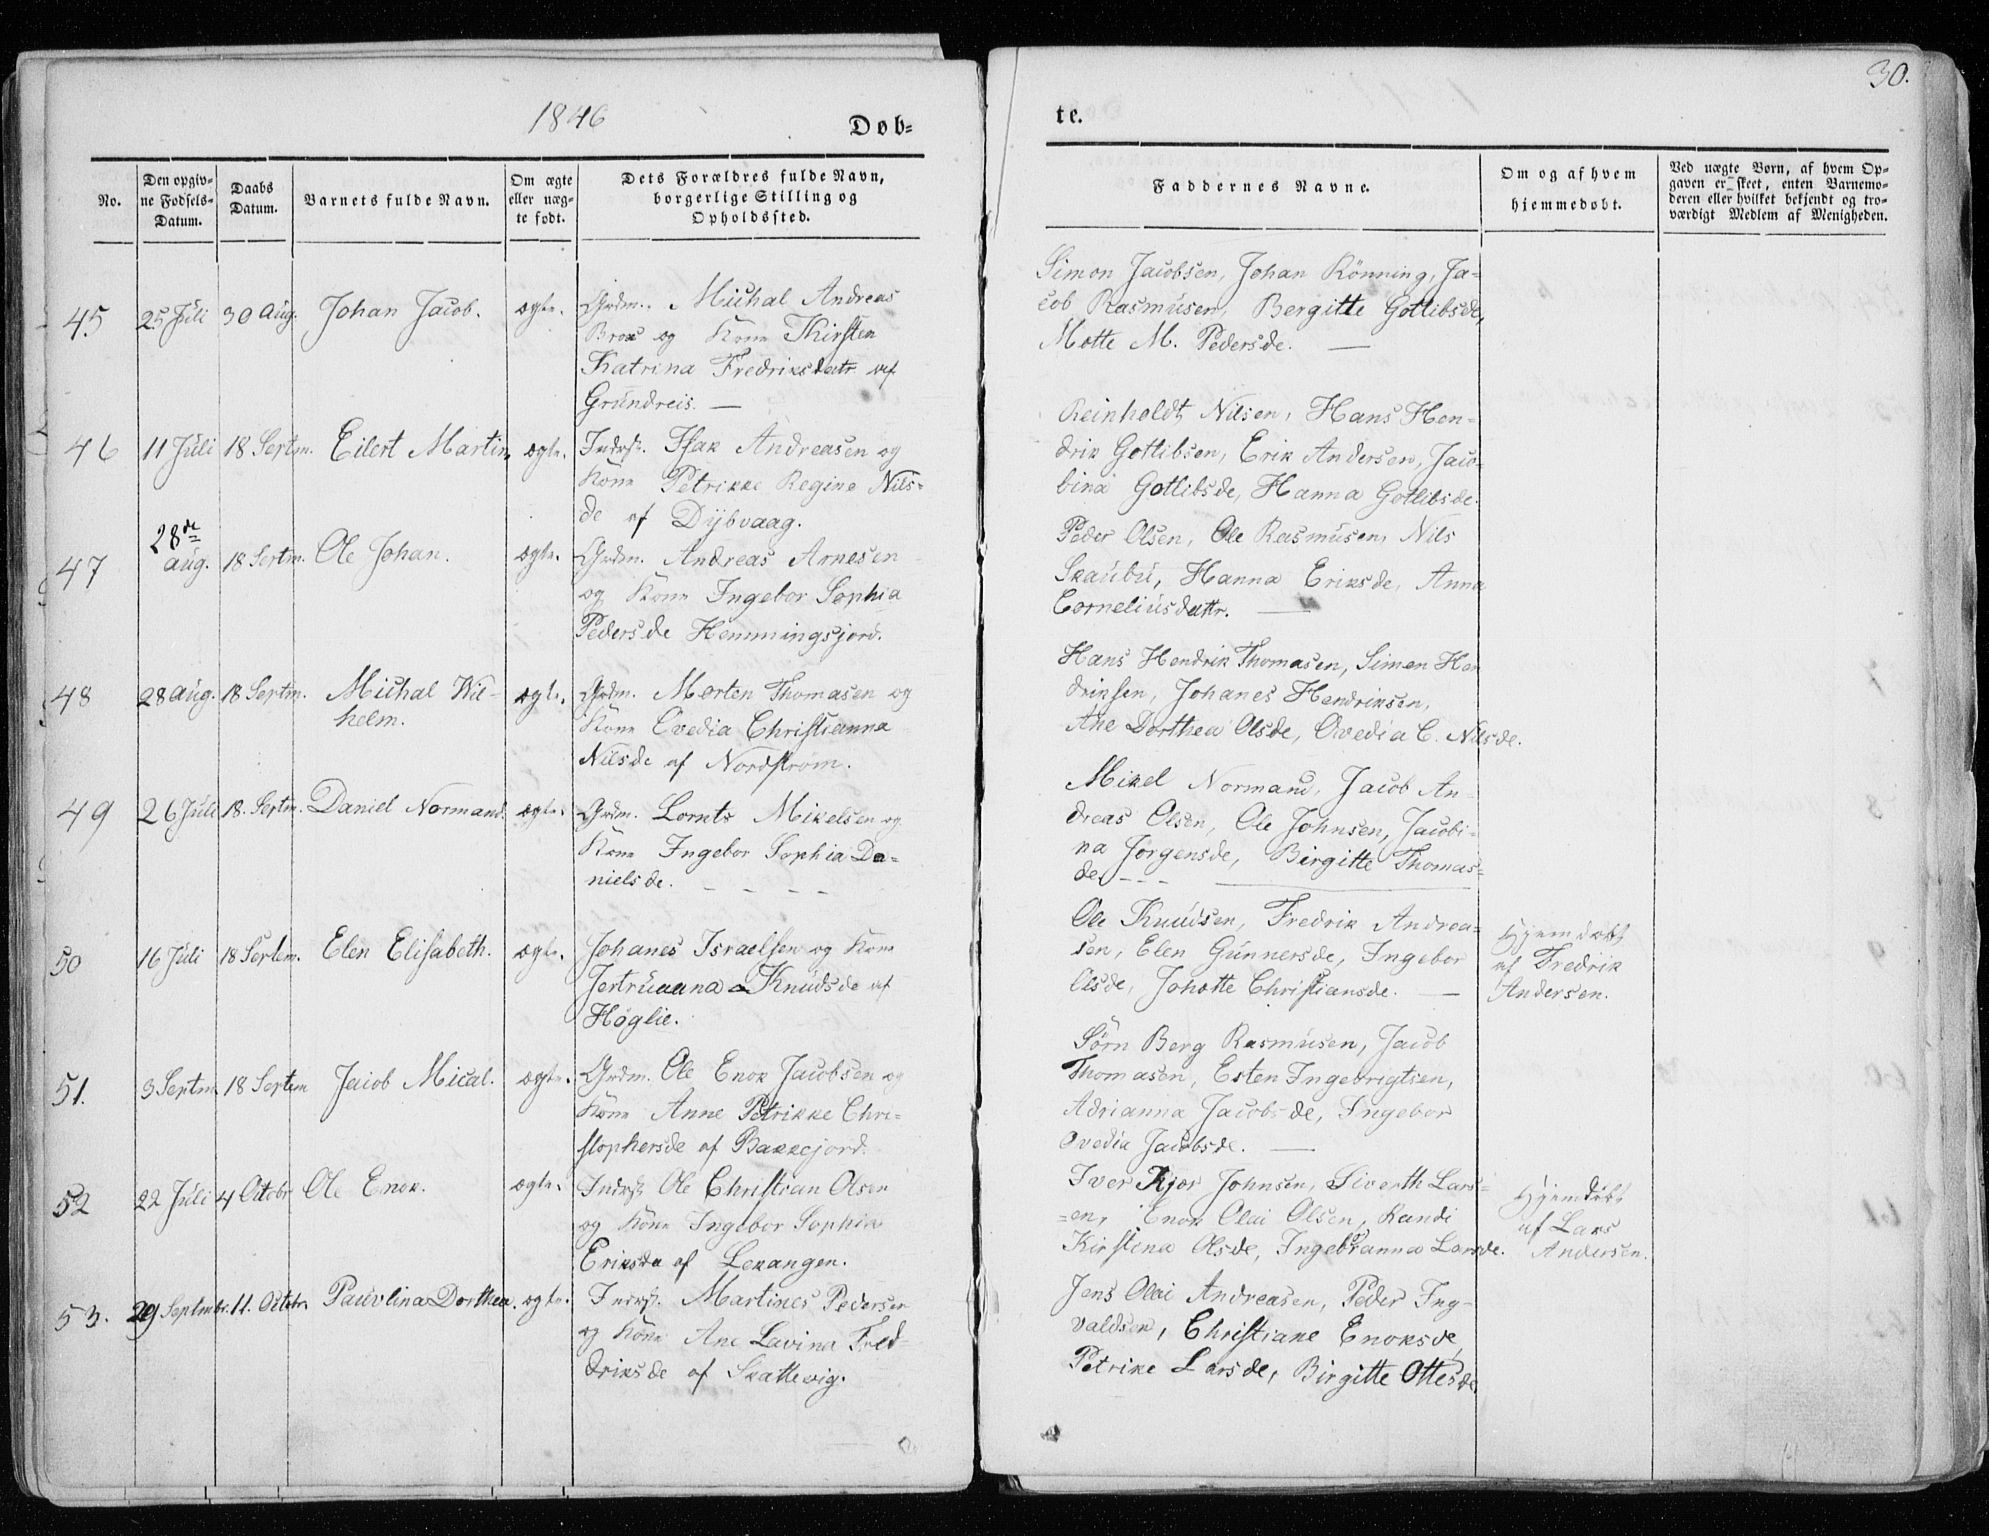 30.
1846
Døb-
te.
No.
Den opgiv-
ne Fødsels-
Datum.
Daabs
Datum.
Barnets fulde Navn.
Om ægte
eller uæg-
te født.
Dets Forældres fulde Navn,
borgerlige Stilling og
Opholdssted.
Faddernes Navne.
Om og af hvem
hjemmedøbt.
Ved uægte Børn, af hvem Op-
gaven er skeet, enten Barnemo-
deren eller hvilket bekjendt og tro-
værdigt Medlem af Menigheden.
45 25 Juli 30 Aug. Johan Jacob. ægte. Grdm. Michal Andreas
Brox og Kone Kirsten
Katrina Fredriksdatr af
Grundreis. —
Simon Jacobsen, Johan Rönning, Ja-
cob Rasmusen, Bergitte Gotlibsde,
Mette M. Pedersde. —
46 11 Juli 18 Septm. Eilert Martin ægte. Indrst. Isak Andreasen og
Kone Petrikke Regine Nils-
de af Dybvaag.
Reinholdt Nilsen, Hans Hen-
drik Gotlibsen, Erik Andersen, Jaco-
bina Gotlibsde, Hanna Gotlibsde.
47 28de Aug. 18 Septm. Ole Johan. ægte. Grdm. Andreas Arnesen
og Kone Ingebor Sophia
Pedersde Hemmingsjord.
Peder Olsen, Ole Rasmusen, Nils
Skaubu, Hanna Eriksde, Anna
Corneliusdattr. —
48 28 Aug. 18 Septm. Michal Wil-
helm. ægte. Grdm. Morten Thomasen og
Kone Ovedia Christianna
Nilsde af Nordstrøm.
Hans Hendrik Thomasen, Simen Hen
driksen, Johanes Hendriksen,
Ane Dorthea Olsde, Ovedia C. Nilsde.
49 26 Juli 18. Septm. Daniel Normand. ægte. Grdm. Lornts Mikelsen og
Kone Ingebor Sophia Da-
nielsde. - - - -
Mikel Normand, Jacob An-
dreas Olsen, Ole Johnsen, Jacobi-
na Jörgensde, Birgitte Thomas-
de. - - -
50 16 Juli 18 Septem. Elen Elisabeth. ægte. Johanes Israelsen og Kone
Jertruanna Knudsde af
Høglie.
Ole Knudsen, Fredrik Andrea-
sen, Elen Gunnersde, Ingebor
Olsde, Johatte Christiansde. —
Hjemdøbt
af Fredrik
Andersen.
51. 3 Septm. 18 Septem Jacob Mical. ægte. Grdm. Ole Enok Jacobsen og
Kone Anne Petrikke Chri-
stophersde af Bakkejord.
Sörn Berg Rasmusen, Jacob
Thomasen, Esten Ingebrigtsen,
Adrianna Jacobsde, Ingebor
Ovedia Jacobsde. —
52 22 Juli 4 Octobr Ole Enok. ægte. Indrst. Ole Christian Olsen
og Kone Ingebor Sophia
Eriksde af Lekangen.
Iver Kjær Johnsen, Siverth Lars-
-en, Enok Olai Olsen, Randi
Kirstina Olsde, Ingebranna Larsde.
Hjemdöbt
af Lars
Andersen.
53. 29 Septmbr. 11. Octobr. Pauvlina Dorthea. ægte. Indrst. Martines Pedersen
og Kone Ane Lavina Fred-
driksde af Skattevig.
Jens Olai Andreasen, Peder Ing-
valdsen, Christiane Enoksde,
Petrike Larsde, Birgitte Ottesde.